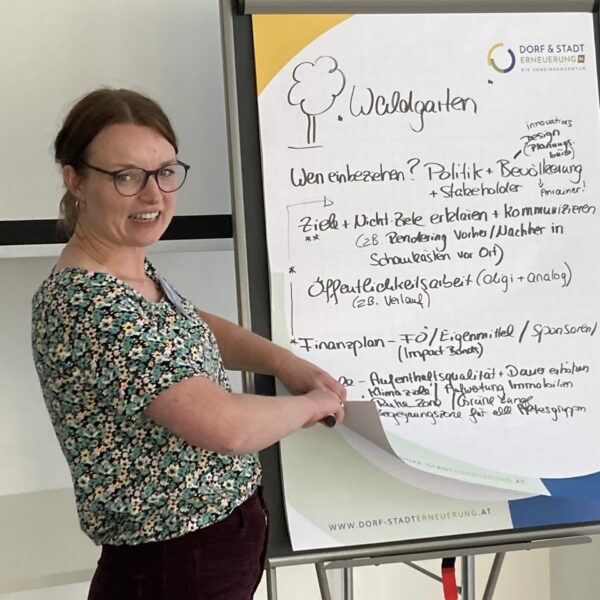 DORF & STADT
ERNEUERUNG
DIE GEMEINDEAGENTUR
Waldgarten
innovatives
Design
(Planungs-
büro)
Wen einbeziehen? Politik + Bevölkerung
+ Stakeholder ↓ Anrainer!
Ziele + Nicht-Ziele erklären + kommunizieren
** (zB. Rendering Vorher/Nachher in
Schaukästen vor Ort)
* Öffentlichkeitsarbeit (digi + analog)
(zB. Verlauf)
* Finanzplan - FÖ/Eigenmittel/Sponsoren/
(Impact Bonds)
- Aufenthaltsqualität + Dauer erhöhen
Klimaziele/Aufwertung Immobilien
Ruhe Zone/Grüne Lunge
Begegnungszone für alle Altersgruppen
DORF-STADTERNEUERUNG.AT
WWW.DORF-STADTERNEUERUNG.AT